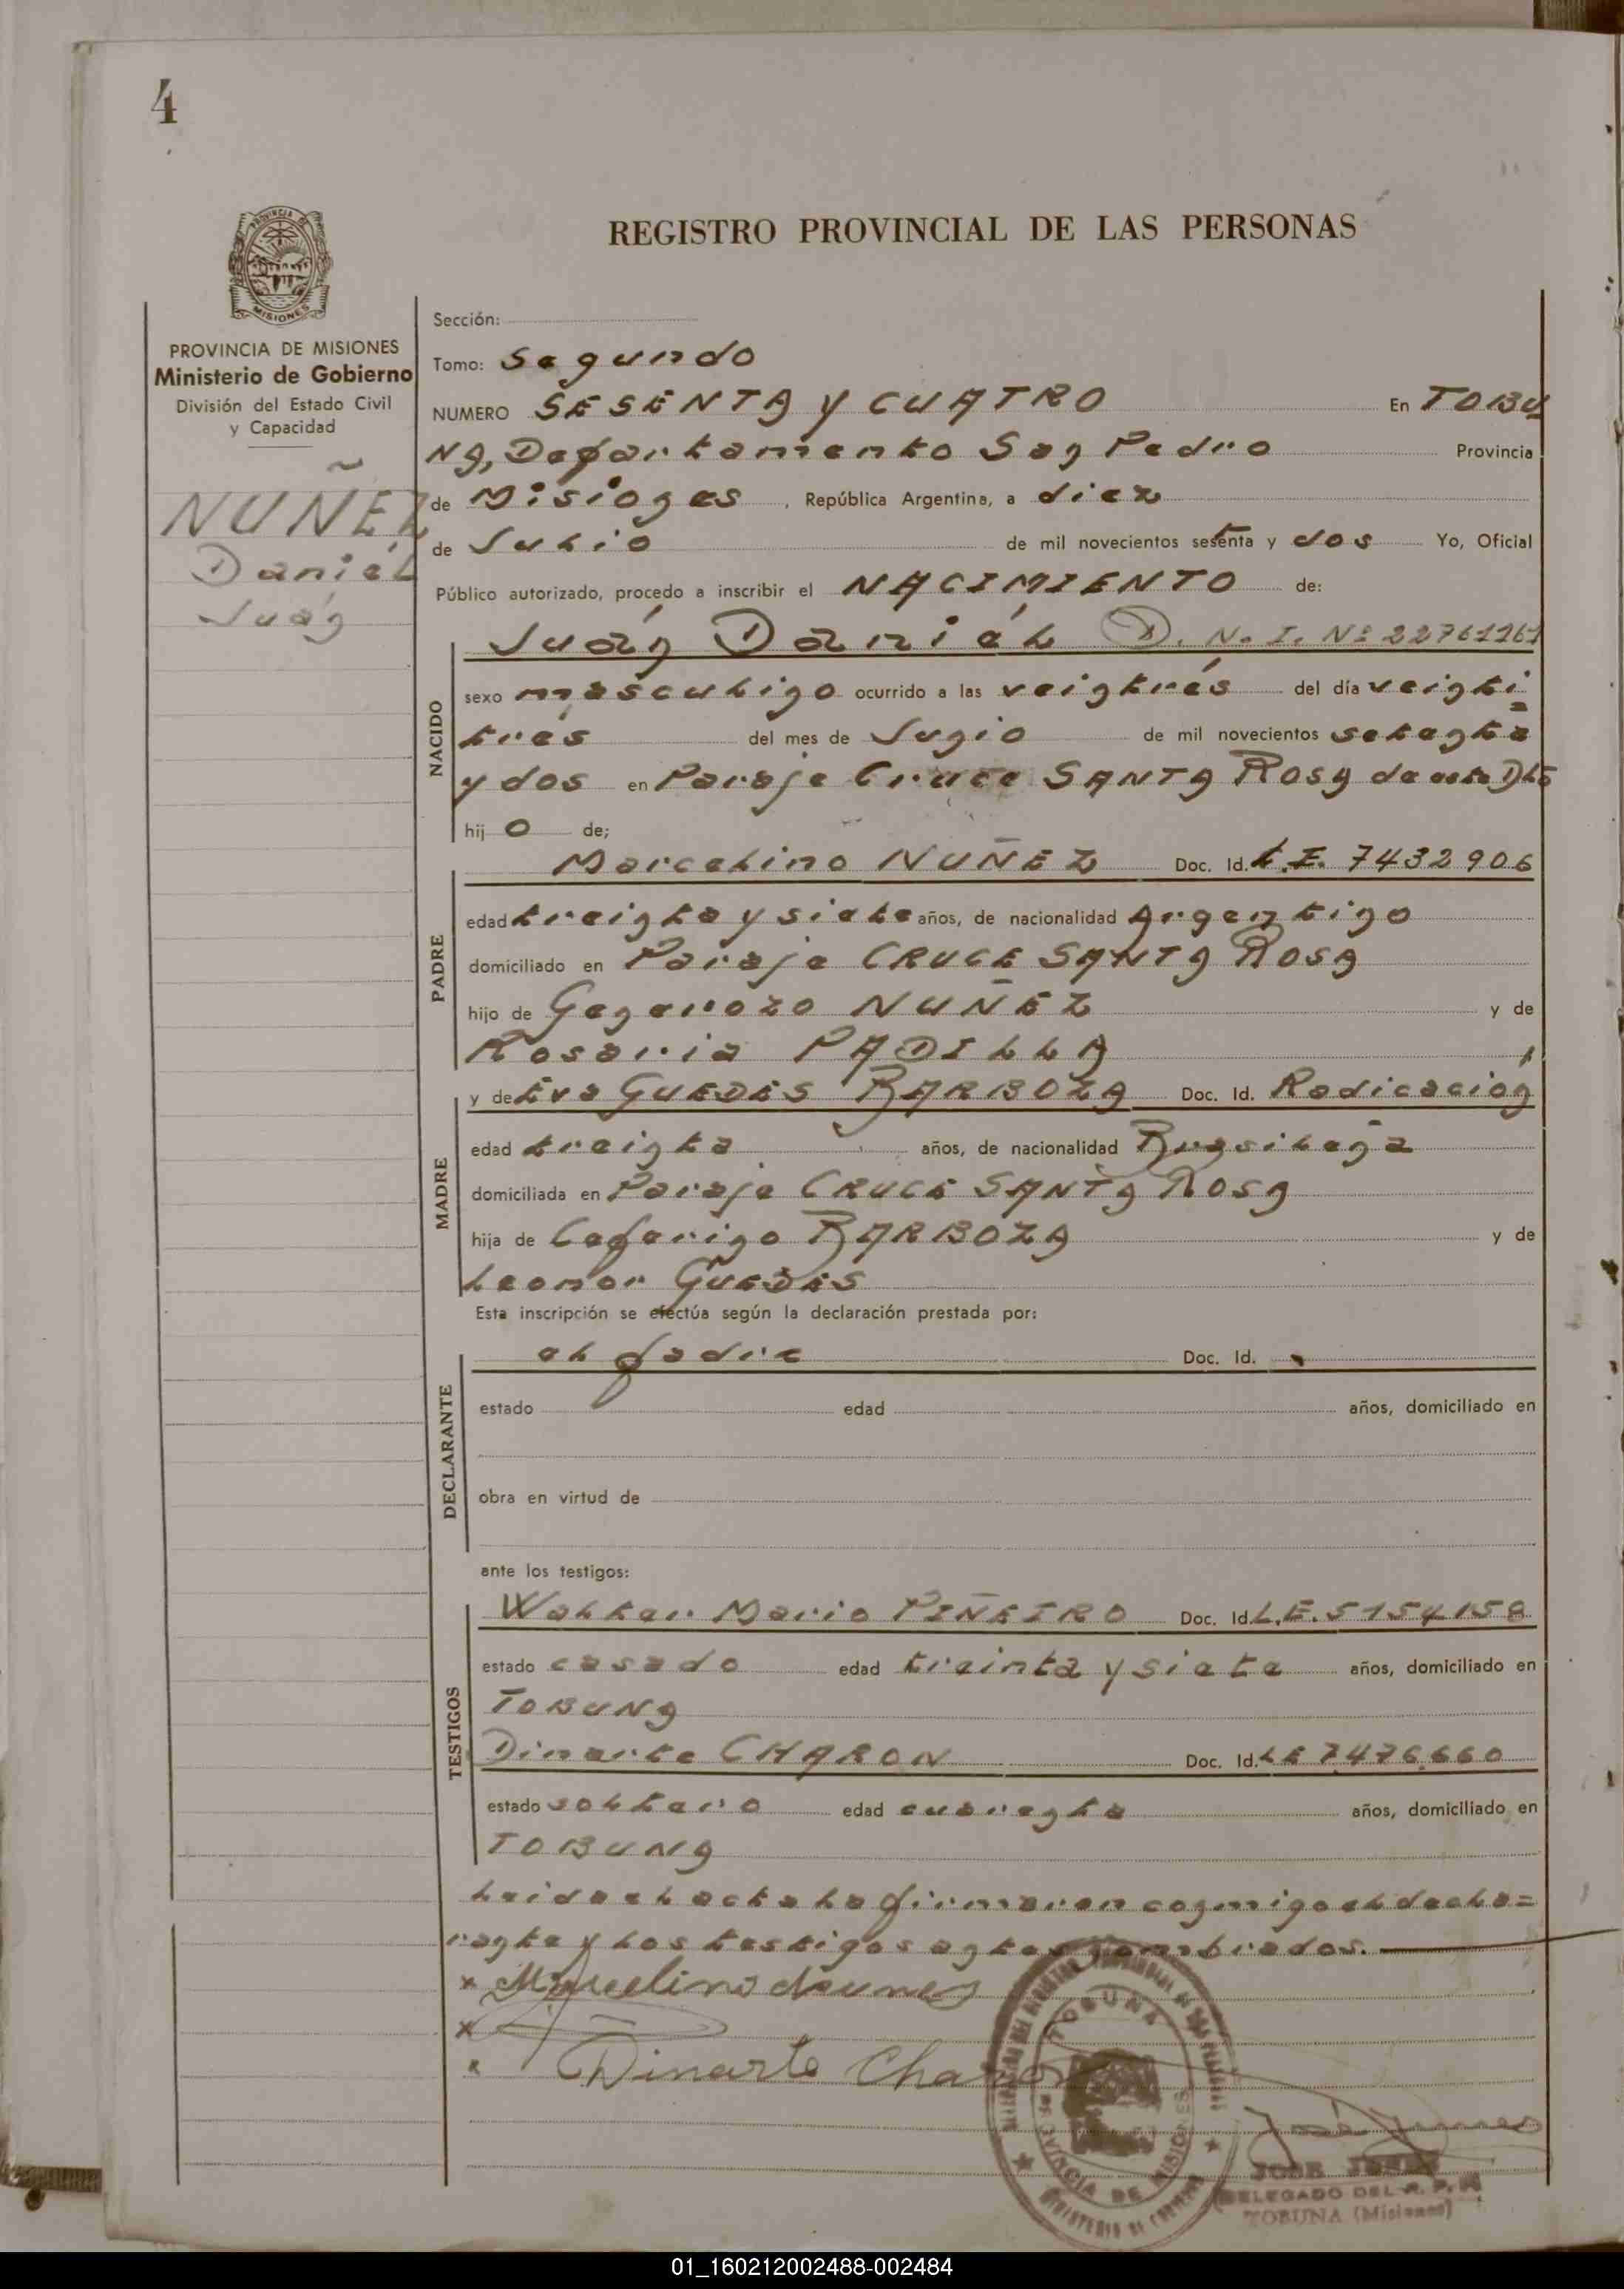 4
REGISTRO PROVINCIAL DE LAS PERSONAS
MISIONES
PROVINCIA DE MISIONES
Ministerio de Gobierno
División del Estado Civil
y Capacidad
NUÑEZ
Daniél
Juán
Sección:
Tomo: Segundo
NUMERO SESENTA y CUATRO En TOBU
NA, Departamento San Pedro Provincia
de Misiones , República Argentina, a diez
de Julio de mil novecientos setenta y dos Yo, Oficial
Público autorizado, procedo a inscribir el NACIMIENTO de:
Juán Daniél D. N. I. Nº 22761261
NACIDO
sexo masculino ocurrido a las veintrés del día veinti=
trés del mes de Junio de mil novecientos setenta
y dos en Paraje Cruce SANTA ROSA de este Dto
hij o de;
Marcelino NUÑEZ Doc. Id. L.E. 7432906
PADRE
edad treinta y siete años, de nacionalidad Argentino
domiciliado en Paraje CRUCE SANTA ROSA
hijo de Generozo NUÑEZ y de
Rosaria PADILLA
y de Eva GUEDES BARBOZA Doc. Id. Radicación
MADRE
edad treinta años, de nacionalidad Brasileña
domiciliada en Paraje CRUCE SANTA ROSA
hija de Ceferino BARBOZA y de
Leonor GUEDES
Esta inscripción se efectúa según la declaración prestada por:
el padre Doc. Id.
DECLARANTE
estado edad años, domiciliado en
obra en virtud de
ante los testigos:
Walter Mario PIÑEIRO Doc. Id. L.E. 5154158
TESTIGOS
estado casado edad treinta y siete años, domiciliado en
TOBUNA
Dinarte CHARON Doc. Id. LE 7476660
estado soltero edad cuarenta años, domiciliado en
TOBUNA
Leida el acta la firmaron conmigo el decla=
rante y los testigos antes nombrados.
x Marcelino Nunes
x
x Dinarte Charon
TOBUNA
PROVINCIA DE MISIONES
DELEGADO DEL R. P. P.
TOBUNA (Misiones)
01_160212002488-002484